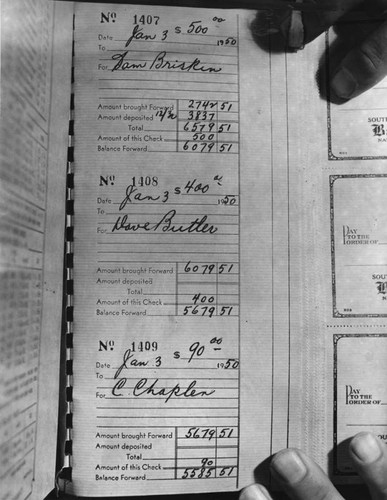 No 1407 $500 00
Date Jan 3 1950
To
For Dam Brisken
Amount brought Forward 2742 51
Amount deposited 12/30 3837
Total 6579 51
Amount of this Check 500
Balance Forward 6079 51
No 1408 $400 00
Date Jan 3 1950
To
For Dave Butler
Amount brought Forward 6079 51
Amount deposited
Total
Amount of this Check 400
Balance Forward 5679 51
No 1409 $90 00
Date Jan 3 1950
To
For C Chaplen
Amount brought Forward 5679 51
Amount deposited
Total
Amount of this Check 90
Balance Forward 5585 51
SOUT
B
PAY
TO THE
ORDER OF
SOU
B
PAY
TO THE
ORDER OF